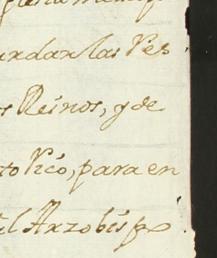 undar las Res
s Reinos, y de
to Rico, para en
el Arzobispo